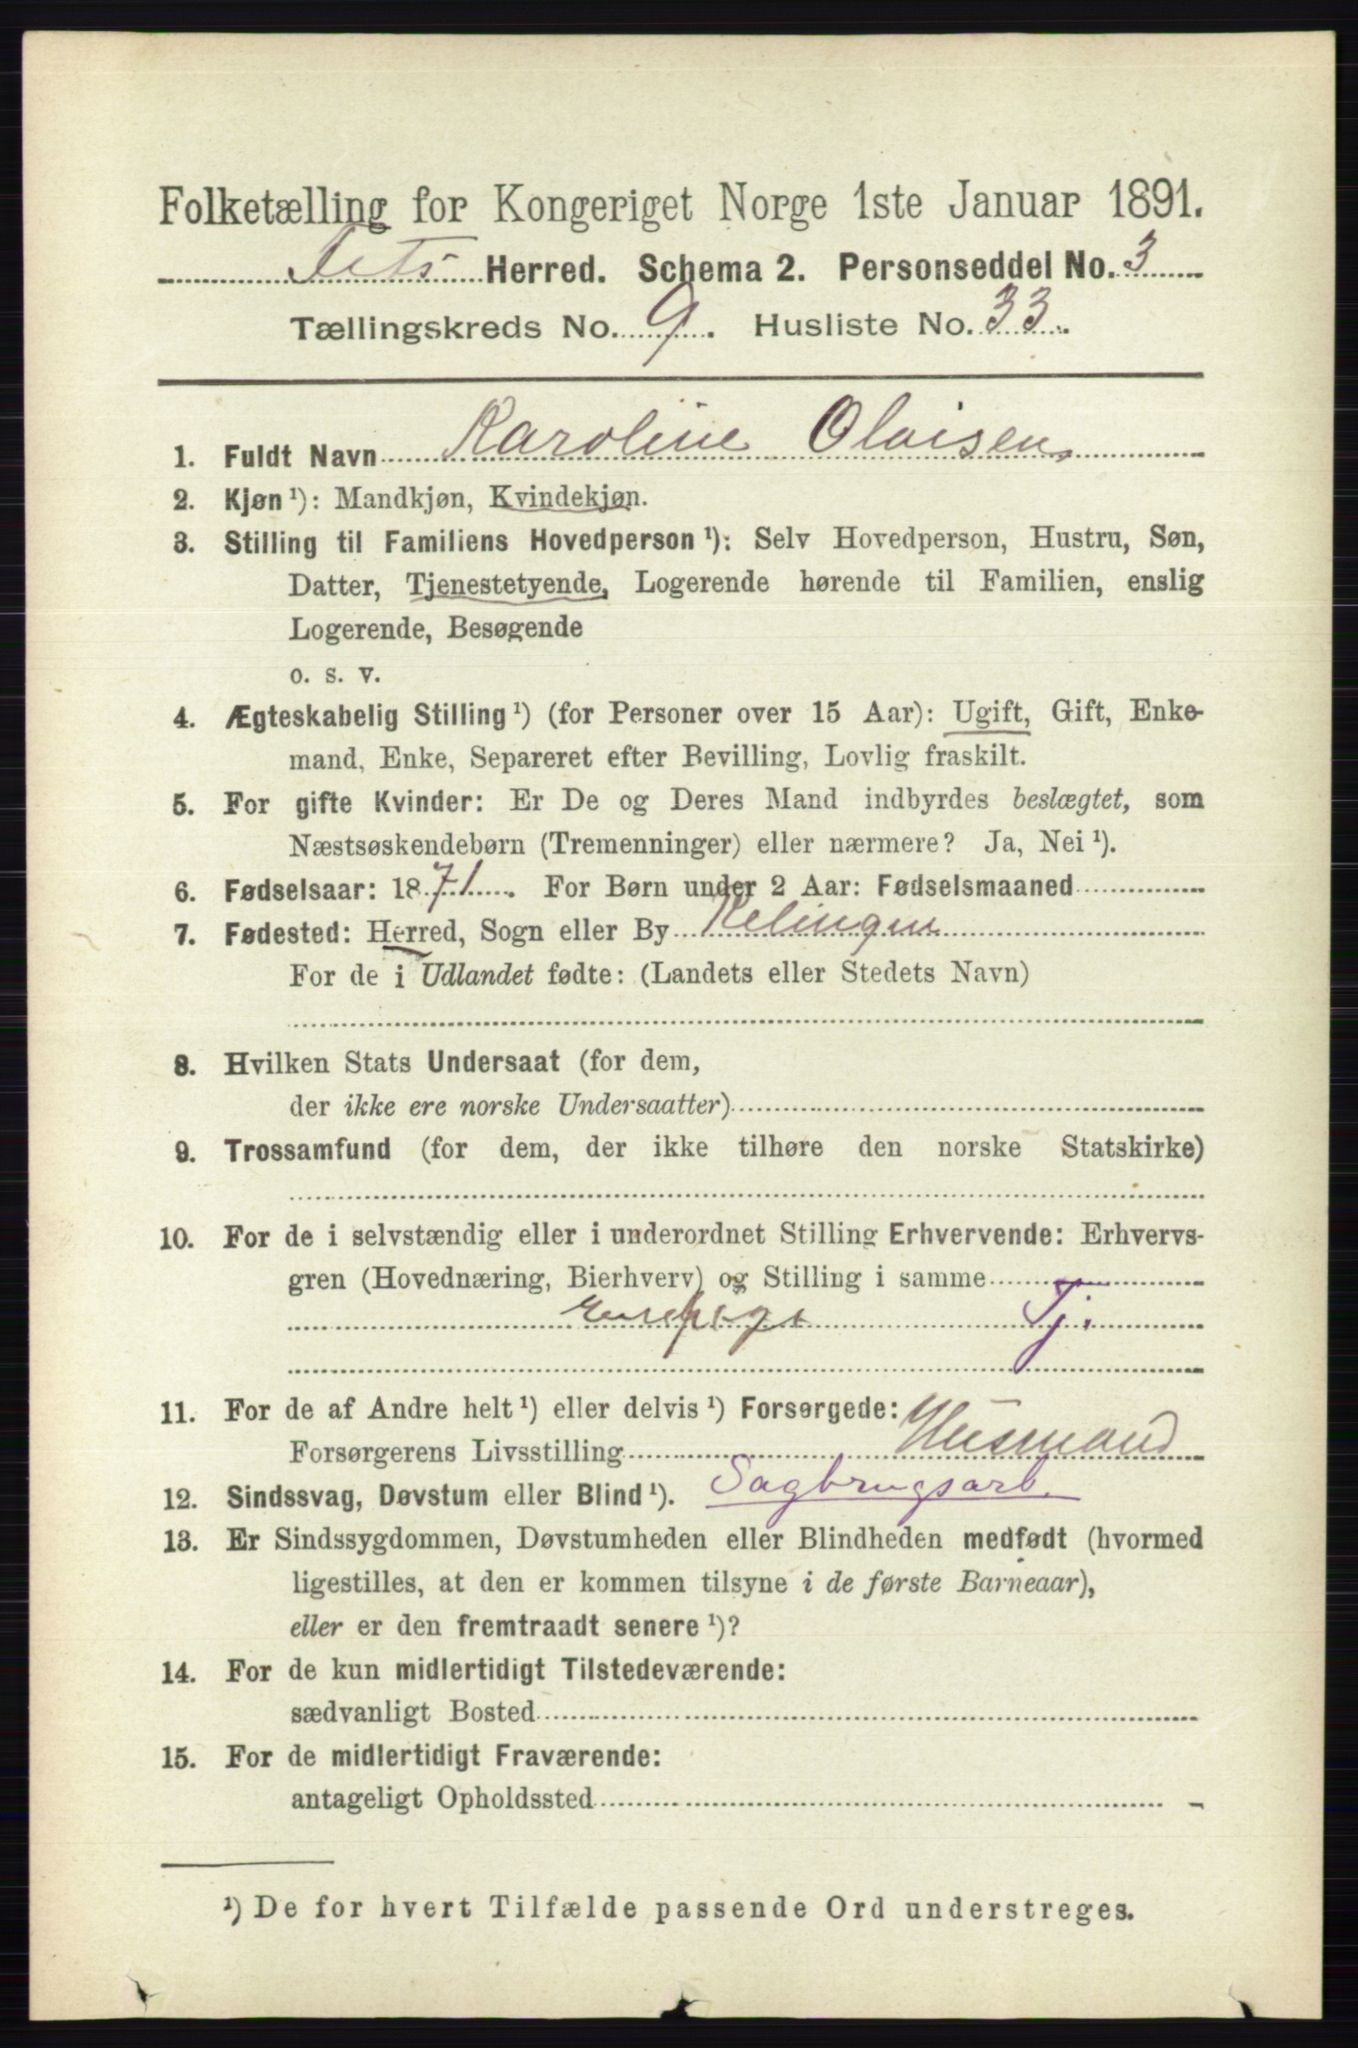 Folketælling for Kongeriget Norge 1ste Januar 1891.
Fets Herred. Schema 2. Personseddel No. 3
Tællingskreds No. 9. Husliste No. 33.
1. Fuldt Navn Karoline Olaisen,
2. Kjøn ¹): Mandkjøn, Kvindekjøn.
3. Stilling til Familiens Hovedperson ¹): Selv Hovedperson, Hustru, Søn,
Datter, Tjenestetyende, Logerende hørende til Familien, enslig
Logerende, Besøgende
o. s. v.
4. Ægteskabelig Stilling ¹) (for Personer over 15 Aar): Ugift, Gift, Enke-
mand, Enke, Separeret efter Bevilling, Lovlig fraskilt.
5. For gifte Kvinder: Er De og Deres Mand indbyrdes beslægtet, som
Næstsøskendebørn (Tremenninger) eller nærmere? Ja, Nei ¹).
6. Fødselsaar: 1871. For Børn under 2 Aar: Fødselsmaaned
7. Fødested: Herred, Sogn eller By
For de i Udlandet fødte: (Landets eller Stedets Navn)
8. Hvilken Stats Undersaat (for dem,
der ikke ere norske Undersaatter)
9. Trossamfund (for dem, der ikke tilhøre den norske Statskirke)
10. For de i selvstændig eller i underordnet Stilling Erhvervende: Erhvervs-
gren (Hovednæring, Bierhverv) og Stilling i samme
Tj.
11. For de af Andre helt ¹) eller delvis ¹) Forsørgede:
Forsørgerens Livsstilling Husmand
12. Sindssvag, Døvstum eller Blind ¹). Sagbrugsarb.
13. Er Sindssygdommen, Døvstumheden eller Blindheden medfødt (hvormed
ligestilles, at den er kommen tilsyne i de første Barneaar),
eller er den fremtraadt senere ¹)?
14. For de kun midlertidigt Tilstedeværende:
sædvanligt Bosted
15. For de midlertidigt Fraværende:
antageligt Opholdssted
¹) De for hvert Tilfælde passende Ord understreges.